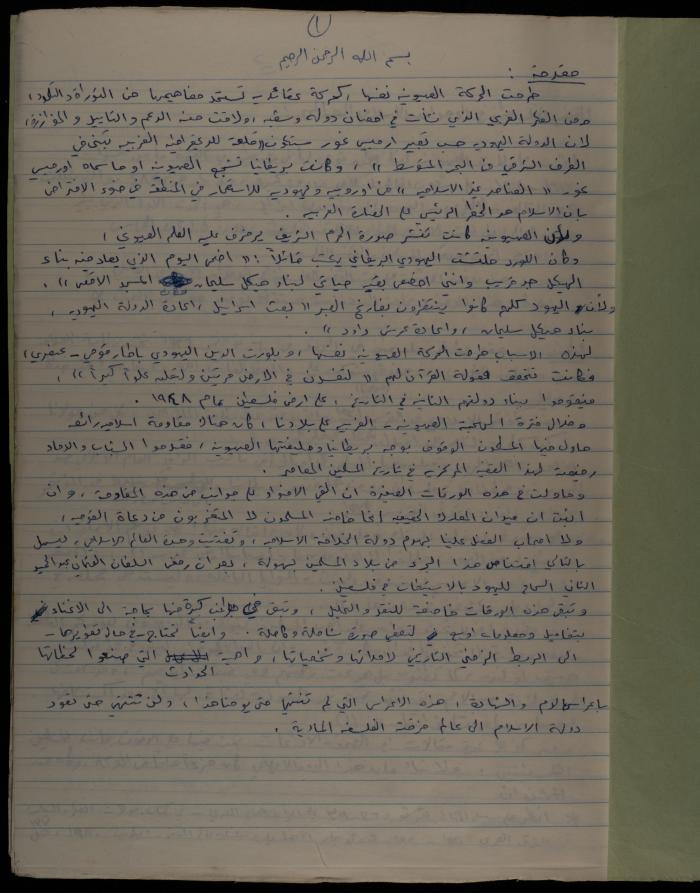 (١)
بسم الله الرحمن الرحيم
مقدمة :
طرحت الحركة الصهيونية نفسها ، كحركة عقائدية تستمد مفاهيمها من التوراة والتلمود ،
ومن الفكر الغربي الذي نشأت في احضان دوله وسقيه ، ولاقت منه الدعم والتأييد والمؤازرة ،
لان الدولة اليهودية حسب تعبير ارميس غور ستكون " قلعة للديمقراطية الغربية تبنى في
الطرف الشرقي من البحر المتوسط " ، وكانت بريطانيا تشجع الصهيونية او ما سماه اورمسبي
غور " العناصر غير الاسلامية " من اوروبية ويهودية للاستعمار في المنطقة في ضوء الافتراض
بان الاسلام هو الخطر الرئيسي على الحضارة الغربية .
ولأن الصهيونية كانت تنشر صورة الحرم الشريف يرفرف عليه العلم الصهيوني ،
وكان اللورد ملتشت اليهودي البريطاني يكتب قائلاً : " اضحى اليوم الذي يعاد فيه بناء
الهيكل جد قريب وانني اخصص بقية حياتي لبناء هيكل سليمان المسجد الاقصى " .
ولأن اليهود كلهم كانوا ينتظرون بفارغ الصبر " بعث اسرائيل ، اعادة الدولة اليهودية ،
بناء هيكل سليمان ، واعادة عرش داود " .
لهذه الاسباب طرحت الحركة الصهيونية نفسها ، وبلورت الدين اليهودي باطار قومي - عنصري ،
فكانت تتحقق مقولة القرآن لهم " لتفسدن في الارض مرتين ولتعلن علواً كبيراً " ،
فيقوموا ببناء دولتهم الثانية في التاريخ ، على ارض فلسطين بعام ١٩٤٨ .
وخلال فترة الهجمة الصهيونية - الغربية على بلادنا ، كان هناك مقاومة اسلامية رائعة
حاول فيها المسلمون الوقوف بوجه بريطانيا وحليفتها الصهيونية ، فقدموا الشباب والاولاد
رخيصة لهذا القضية المركزية في تاريخ المسلمين المعاصر .
وحاولت في هذه الورقات الصغيرة ان القي الاضواء على جوانب من هذه المقاومة ، وان
اثبت ان ميدان المعارك الحقيقية انما خاضه المسلمون لا المتغربون من دعاة القومية ،
ولا اصحاب الفضل علينا بهدم دولة الخلافة الاسلامية ، وتفتيت وحدة العالم الاسلامي ، ليسهل
بالتالي اقتناص هذا الجزء من بلاد المسلمين بسهولة ، بعد ان رفض السلطان العثماني عبد الحميد
الثاني السماح لليهود بالاستيطان في فلسطين .
وتبقى هذه الورقات خاضعة للنقد والتحليل ، وتبقى في جوانب كثيرة منها بحاجة الى الاغناء
بتفاصيل ومعلومات اوسع لتعطي صورة شاملة وكاملة . وايضاً تحتاج - في حال تطويرها -
الى الربط الزمني التاريخي لاحداثها وشخصياتها ، واهمية الحوادث التي صنعوا لحظاتها
باعراس الدم والشهادة ، هذه الاعراس التي لم تنتهي حتى يومنا هذا ، ولن تنتهي حتى تعود
دولة الاسلام الى عالم مزقت الفلسفة المادية .